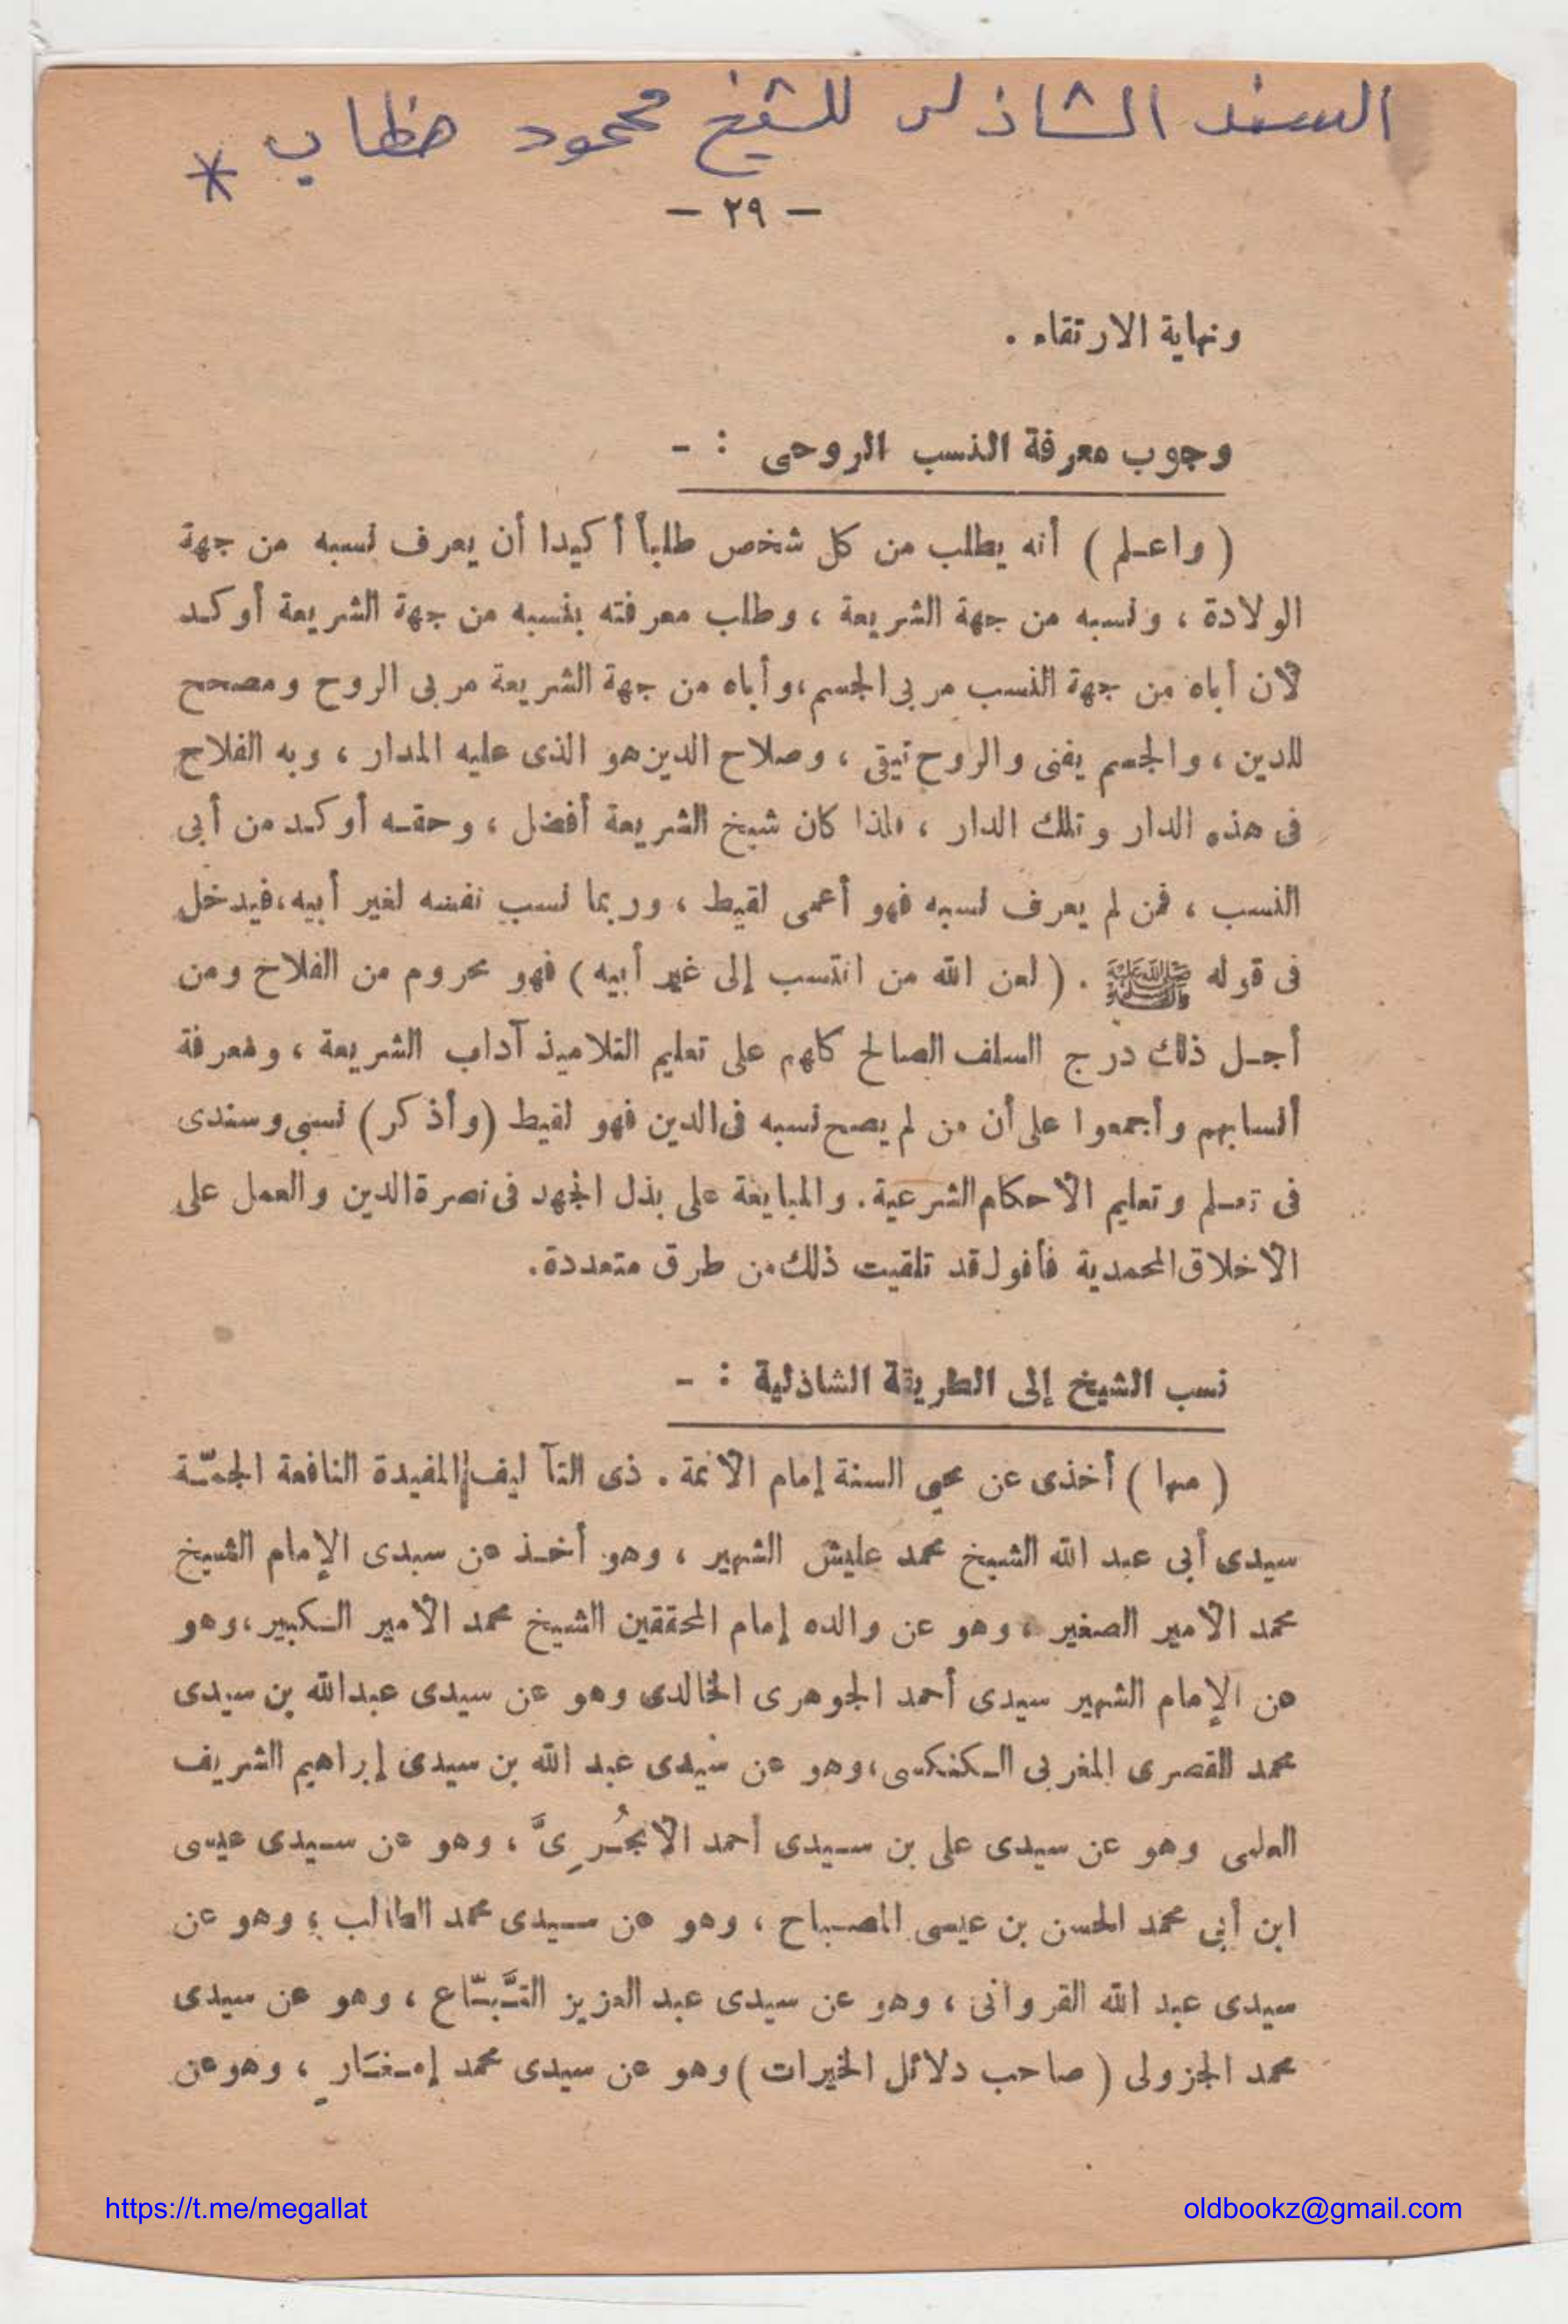 السند الشاذلى للشيخ محمود خطاب *
— ٢٩ —
ونهاية الارتقاء .
وجوب معرفة النسب الروحى : -
( واعلم ) أنه يطلب من كل شخص طلباً أكيدا أن يعرف نسبه من جهة
الولادة ، ونسبه من جهة الشريعة ، وطلب معرفته بنسبه من جهة الشريعة أوكد
لأن أباه من جهة النسب مربى الجسم ، وأباه من جهة الشريعة مربى الروح ومصحح
للدين ، والجسم يفنى والروح تبقى ، وصلاح الدين هو الذى عليه المدار ، وبه الفلاح
فى هذه الدار وتلك الدار ، لهذا كان شيخ الشريعة أفضل ، وحقه أوكد من أبى
النسب ، فمن لم يعرف نسبه فهو أعمى لقيط ، وربما نسب نفسه لغير أبيه ، فيدخل
فى قوله ﷺ . ( لعن الله من انتسب إلى غير أبيه ) فهو محروم من الفلاح ومن
أجل ذلك درج السلف الصالح كلهم على تعليم التلاميذ آداب الشريعة ، ومعرفة
أنسابهم وأجمعوا على أن من لم يصح نسبه فى الدين فهو لقيط (وأذكر) نسبى وسندى
فى تعلم وتعليم الأحكام الشرعية . والمبايعة على بذل الجهد فى نصرة الدين والعمل على
الأخلاق المحمدية فأقول قد تلقيت ذلك من طرق متعددة .
نسب الشيخ إلى الطريقة الشاذلية : -
( منها ) أخذى عن محيى السنة إمام الأئمة . ذى التآليف المفيدة النافعة الجمّة
سيدى أبى عبد الله الشيخ محمد عليش الشهير ، وهو أخذ عن سيدى الإمام الشيخ
محمد الأمير الصغير ، وهو عن والده إمام المحققين الشيخ محمد الأمير الكبير ، وهو
عن الإمام الشهير سيدى أحمد الجوهرى الخالدى وهو عن سيدى عبدالله بن سيدى
محمد القصرى المغربى الكنكسى ، وهو عن سيدى عبد الله بن سيدى إبراهيم الشريف
العلمى وهو عن سيدى على بن سيدى أحمد الأنجُرِىَّ ، وهو عن سيدى عيسى
ابن أبى محمد الحسن بن عيسى المصباح ، وهو عن سيدى محمد الطالب ، وهو عن
سيدى عبد الله القروانى ، وهو عن سيدى عبد العزيز التَّبّاع ، وهو عن سيدى
محمد الجزولى ( صاحب دلائل الخيرات ) وهو عن سيدى محمد إمغَارِ ، وهو عن
https://t.me/megallat
oldbookz@gmail.com